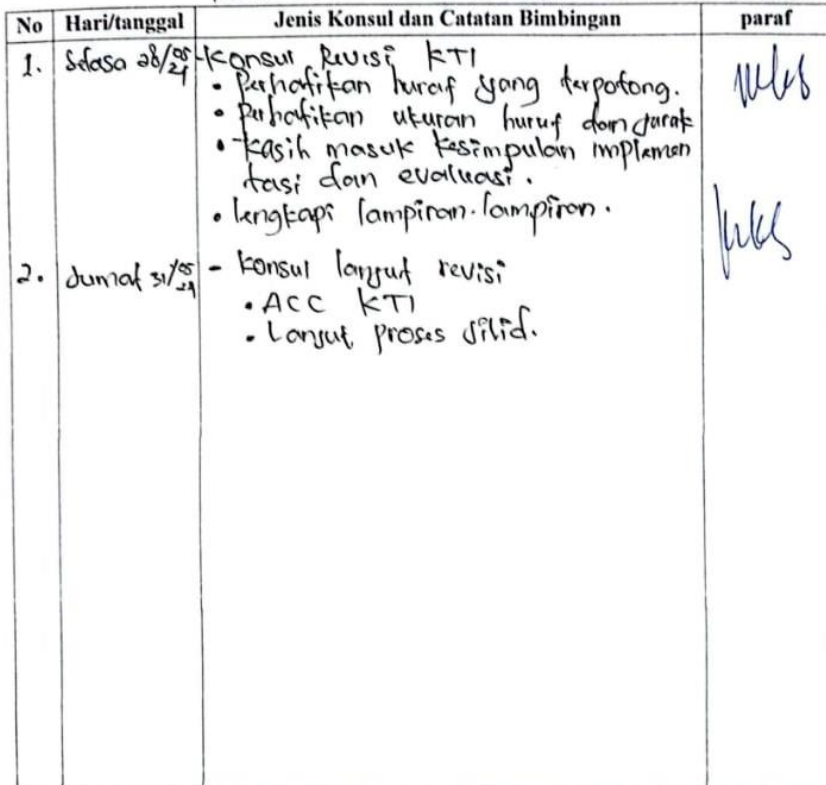 No Hari/tanggal Jenis Konsul dan Catatan Bimbingan paraf
1. Selasa 28/05 24 - Konsul Revisi KTI
• Perhatikan huraf yang terpotong.
• Perhatikan ukuran huruf dan jarak
• Kasih masuk kesimpulan implemen
tasi dan evaluasi.
• lengkapi lampiran-lampiran.
2. Jumat 31/05 24 - konsul lanjut revisi
• ACC KTI
• Lanjut proses jilid.